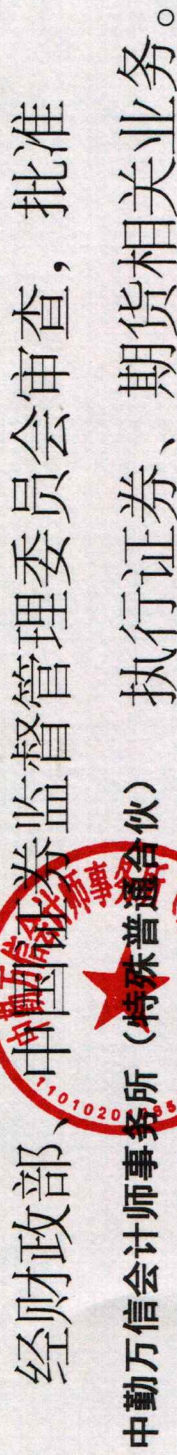 经财政部、中国证券监督管理委员会审查，批准
中勤万信会计师事务所（特殊普通合伙） 执行证券、期货相关业务。
中勤万信会计师事务所